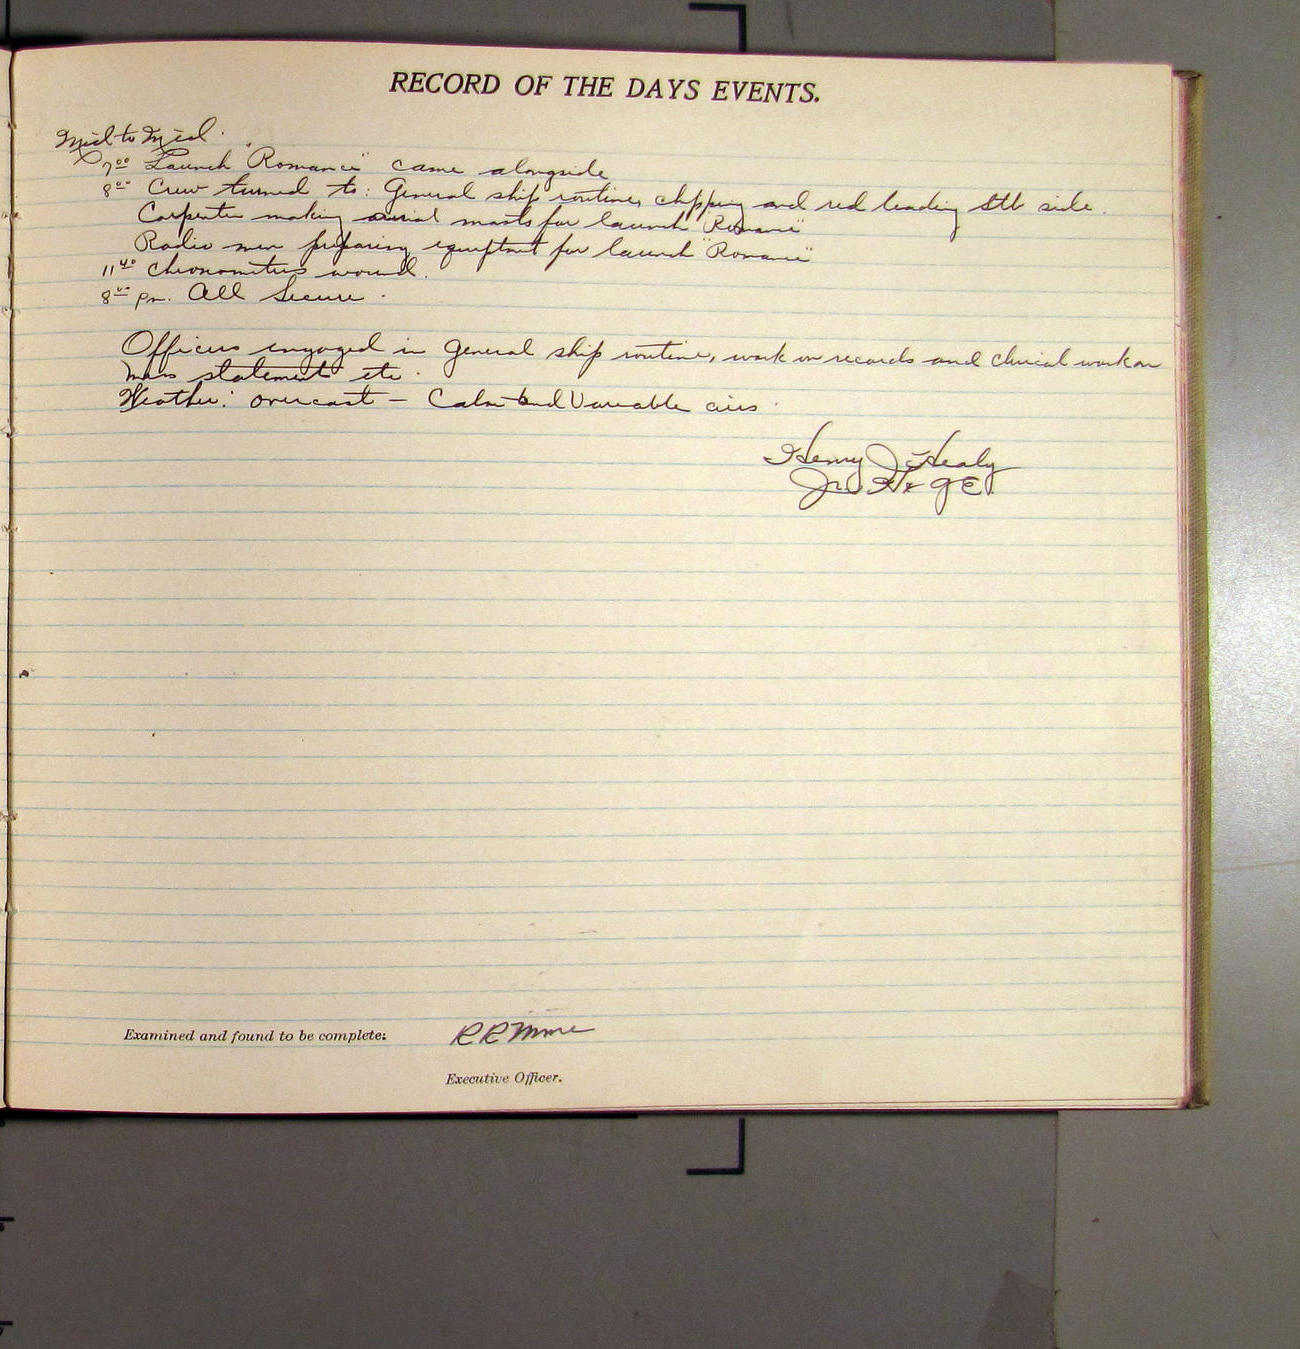 RECORD OF THE DAYS EVENTS.
Mid to Mid.
7⁰⁰ Launch "Romance" came alongside
8⁰⁰ Crew turned to: General ship routine, chipping and red leading Stb side.
Carpenter making aerial masts for launch "Romance"
Radio men preparing equiptment for launch "Romance"
11⁴⁰ Chronometers wound.
8⁰⁰ pm. All Secure.
Officers engaged in General ship routine, work on records and clerical work on
mess statement etc.
Weather: overcast – Calm and Variable airs.
Henry J. Healy
Jr. H & G E.
Examined and found to be complete:
R R Moore
Executive Officer.